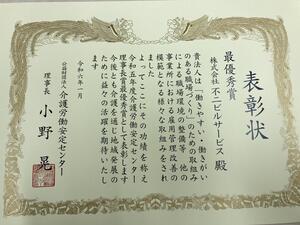 表彰状
最優秀賞
株式会社 不二ビルサービス 殿
貴法人は「働きやすい・働きがい
のある職場づくり」のための取組み
による職場環境の整備等、他の
事業所における雇用管理改善の
模範となる様々な取組みをされ
ました
よってここにその功績を称え
令和五年度介護労働安定センター
理事長賞最優秀賞として表彰します
今後とも介護を通じ地域発展の
ために益々の活躍を期待いたし
ます
令和六年一月
公益財団法人 介護労働安定センター
理事長 小野 晃